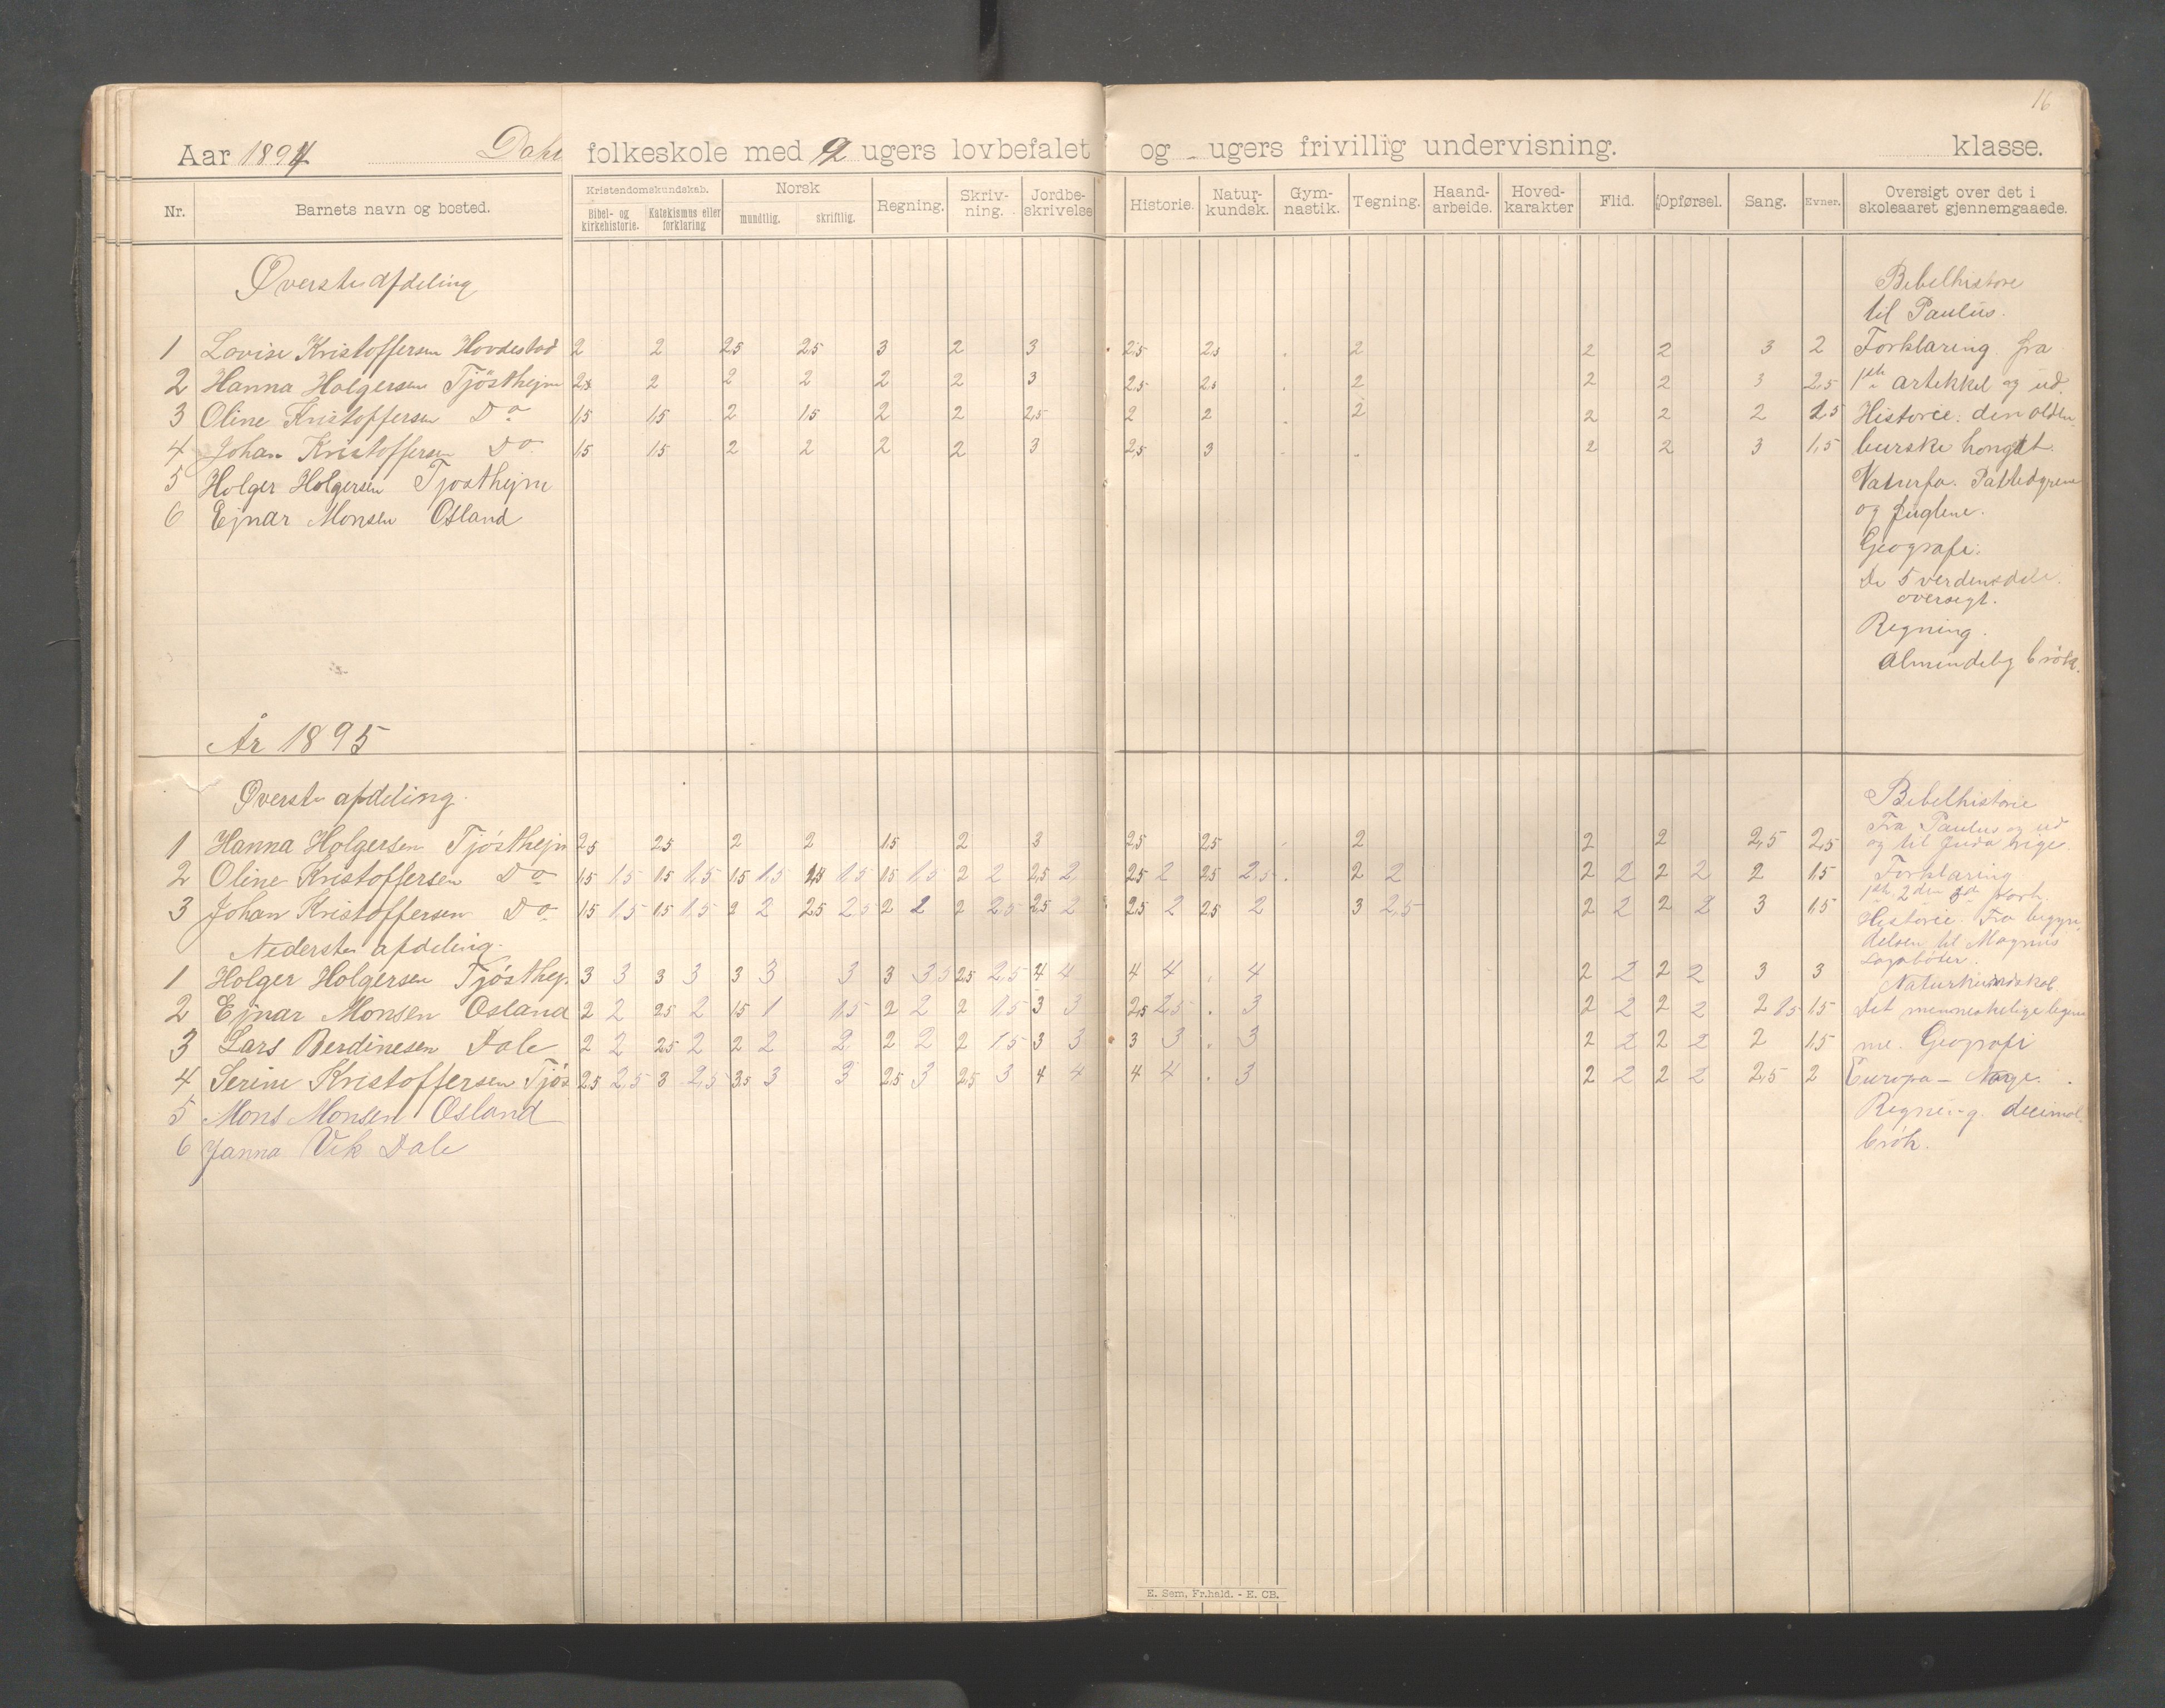 16
Aar 1894 Dahle folkeskole med 9 ugers lovbefalet og - ugers frivillig undervisning. klasse.
Nr. Barnets navn og bosted. Kristendomskundskab. Bibel- og kirkehistorie. Katekismus eller forklaring Norsk mundtlig. skriftlig. Regning. Skriv-ning. Jordbe-skrivelse Historie. Natur-kundsk. Gym-nastik. Tegning. Haand-arbeide. Hoved-karakter Flid. Opførsel. Sang. Evner. Oversigt over det i skoleaaret gjennemgaaede.
Øverste afdeling
1 Lovise Kristoffersen Hovdestad 2 2 2,5 2,5 3 2 3 2,5 2,5 . 2 2 2 3 2
2 Hanna Holgersen Tjösthejm 2,5 2 2 2 2 2 3 2,5 2,5 . 2 2 2 3 2,5
3 Oline Kristoffersen Do 1,5 1,5 2 1,5 2 2 2,5 2 2 . 2 2 2 2 1,5
4 Johan Kristoffersen Do 1,5 1,5 2 2 2 2 3 2,5 3 . . 2 2 3 1,5
5 Holger Holgersen Tjosthejm
6 Ejnar Monsen Osland
Bibelhistore
til Paulus.
Forklaring fra
1ste artikkel og ud.
Historie: den olden-
burske kongæt.
Naturfa. Pattedyrene
og fuglene.
Geografi:
De 5 verdensdele.
oversigt.
Regning.
Almindelig brök.
År 1895
Øverste afdeling.
1 Hanna Holgersen Tjösthejm 2,5 2,5 2 2 1,5 2 3 2,5 2,5 . 2 2 2 2,5 2,5
2 Oline Kristoffersen Do 1,5 1,5 1,5 1,5 1,5 1,5 1,5 1,5 1,5 1,5 2 2 2,5 2 2,5 2 2,5 2,5 . 2 2 2 2 2 2 2 1,5
3 Johan Kristoffersen Do 1,5 1,5 1,5 1,5 2 2 2,5 2,5 2 2 2 2,5 2,5 2 2,5 2 2,5 2 3 2,5 2 2 2 2 3 1,5
Nederste afdeling.
1 Holger Holgersen Tjösthej. 3 3 3 3 3 3 3 3 3,5 2,5 2,5 4 4 4 4 . 4 2 2 2 2 3 3
2 Ejnar Monsen Osland 2 2 2,5 2 1,5 1 1,5 2 2 2 1,5 3 3 2,5 2,5 . 3 2 2 2 2 2 1,5 1,5
3 Lars Berdinesen Dale 2 2 2,5 2 2 2 2 2 2 2 1,5 3 3 3 3 . 3 2 2 2 2 2 1,5
4 Serine Kristoffersen Tjös 2,5 2,5 3 2,5 3,5 3 3 2,5 3 2,5 3 4 4 4 4 . 3 2 2 2 2 2,5 2
5 Mons Monsen Osland
6 Janna Vik Dale
Bibelhistorie
Fra Paulus og ud
og til Juda rige.
Forklaring
1ste 2den 3die part.
Historie. Fra begyn-
delsen til Magnus
Lagaböter.
Naturkundskab
Det menneskelige legem
me. Geografi
Europa - Norge.
Regning. decimal
brök.
E. Sem, Fr.hald. - E. CB.